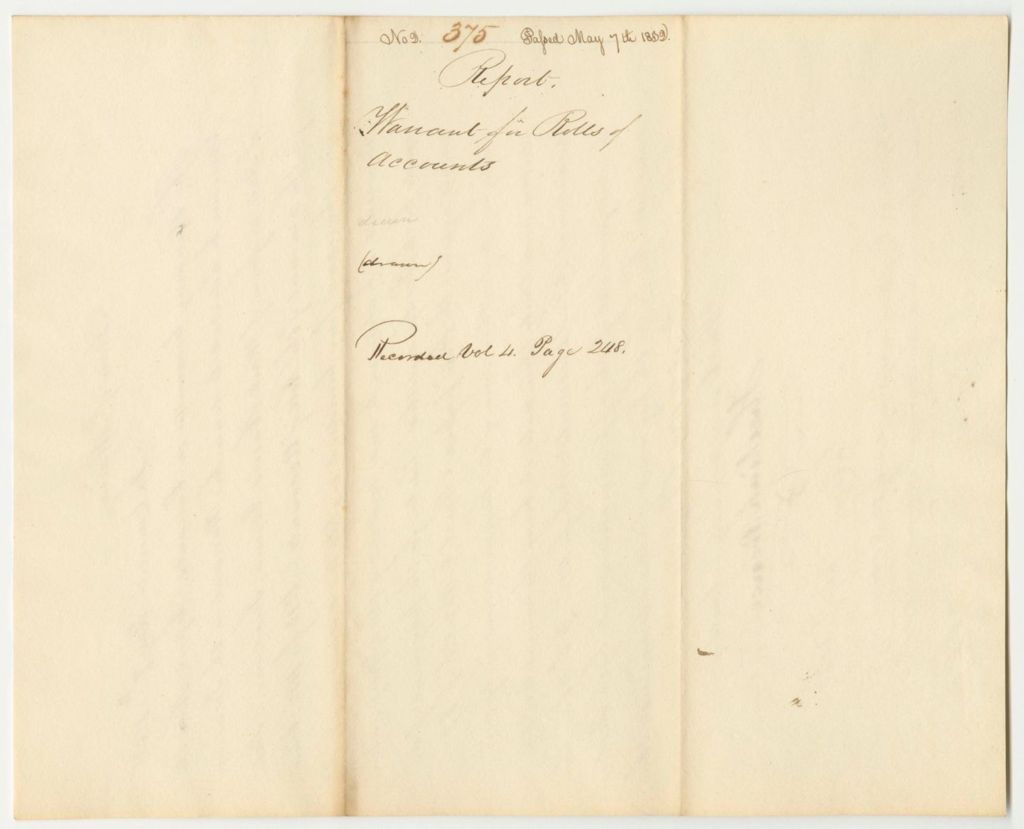 No 9. 375 Passed May 7th 1829.
Report.
Warrant for Rolls of
Accounts
drawn
(drawn)
Recorded Vol 4. Page 248.